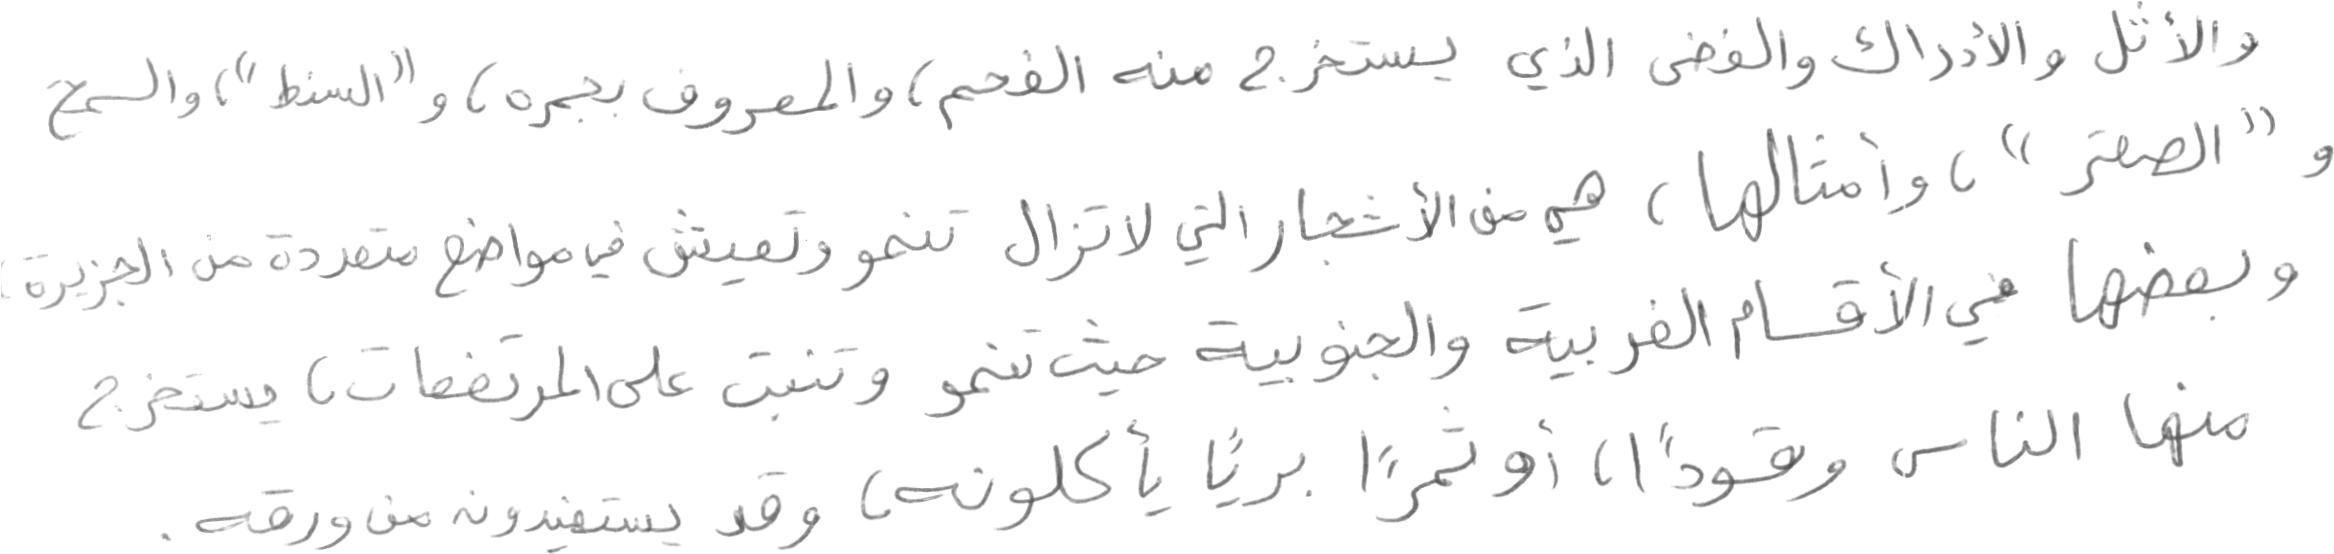 والأثل والأدراك والغضى الذي يستخرج منه الفحم، والمعروف بجمره، و"السنط"، والسمح
و"الصعتر"، وأمثالها، هي من الأشجار التي لا تزال تنمو وتعيش في مواضع متعددة من الجزيرة،
وبعضها في الأقسام الغربية والجنوبية حيث تنمو وتنبت على المرتفعات، يستخرج
منها الناس وقودًا، أو ثمرًا بريًا يأكلونه، وقد يستفيدون من ورقه.